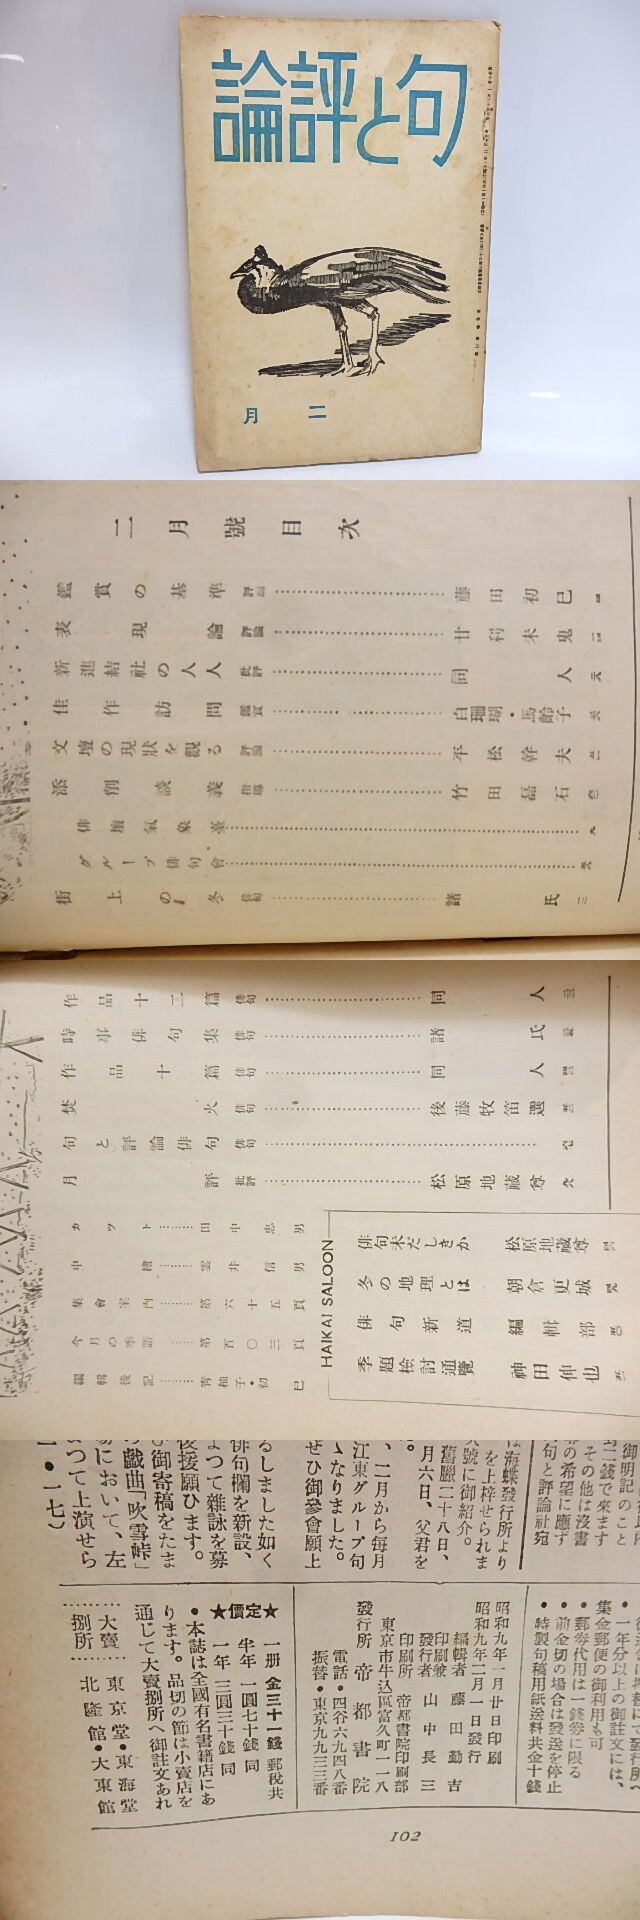 句と評論
二月
二月號目次
鑑賞の基準 評論 藤田初巳
表現論 評論 甘利未鬼
新進結社の人人 批評 同人
佳作訪問 鑑賞 白珊瑚・馬齢子
文壇の現狀を觀る 評論 平松幹夫
添削談義 指導 竹田磊石
俳壇氣象臺 九
グループ俳句會
街上の冬 俳句 諸氏 三
作品十二篇 俳句 同人
時事俳句集 俳句 諸氏
作品十篇 俳句 同人
焚火 俳句 後藤牧笛選
句と評論俳句 俳句
月評 批評 松原地藏尊
カット 田中忠男
中繪 雲井信男
集會案內 第六十五頁
今月の季語 第百〇三頁
編輯後記 靑柚子・初巳
HAIKAI SALOON
俳句未だしきか 松原地藏尊
冬の地理とは 朝倉更城
俳句新道 編輯部
季題檢討通覽 神田伸也
御明記のこと
二錢で來ます
その他は沒書
の希望に應ず
句と評論社宛
は海蝶發行所より
を上梓せられま
號に御紹介。
舊臘二十八日、
月六日、父君を
、二月から每月
江東グループ句
ゝなりました。
ぜひ御參會願上
るしました如く
俳句欄を新設、
よつて雜詠を募
後援願ひます。
ひ御寄稿をたま
戲曲「吹雪峠」
場において、左
よつて上演せら
一・一七)
・一年分以上の御註文には、
集金郵便の御利用も可
・郵劵代用は一錢劵に限る
・前金切の場合は發送を停止
・特製句稿用紙送料共金十錢
昭和九年一月廿日印刷
昭和九年二月一日發行
編輯者 藤田勤吉
印刷兼發行者 山中長三
印刷所 帝都書院印刷部
東京市牛込區富久町一一八
發行所 帝都書院
電話・四谷六九四八番
振替・東京九九三三番
★定價★
一册 金三十一錢 郵稅共
半年 一圓七十錢 同
一年 三圓三十錢 同
・本誌は全國有名書籍店にあ
ります。品切の節は小賣店を
通じて大賣捌所へ御註文あれ
大賣捌所 東京堂・東海堂
北隆館・大東館
102